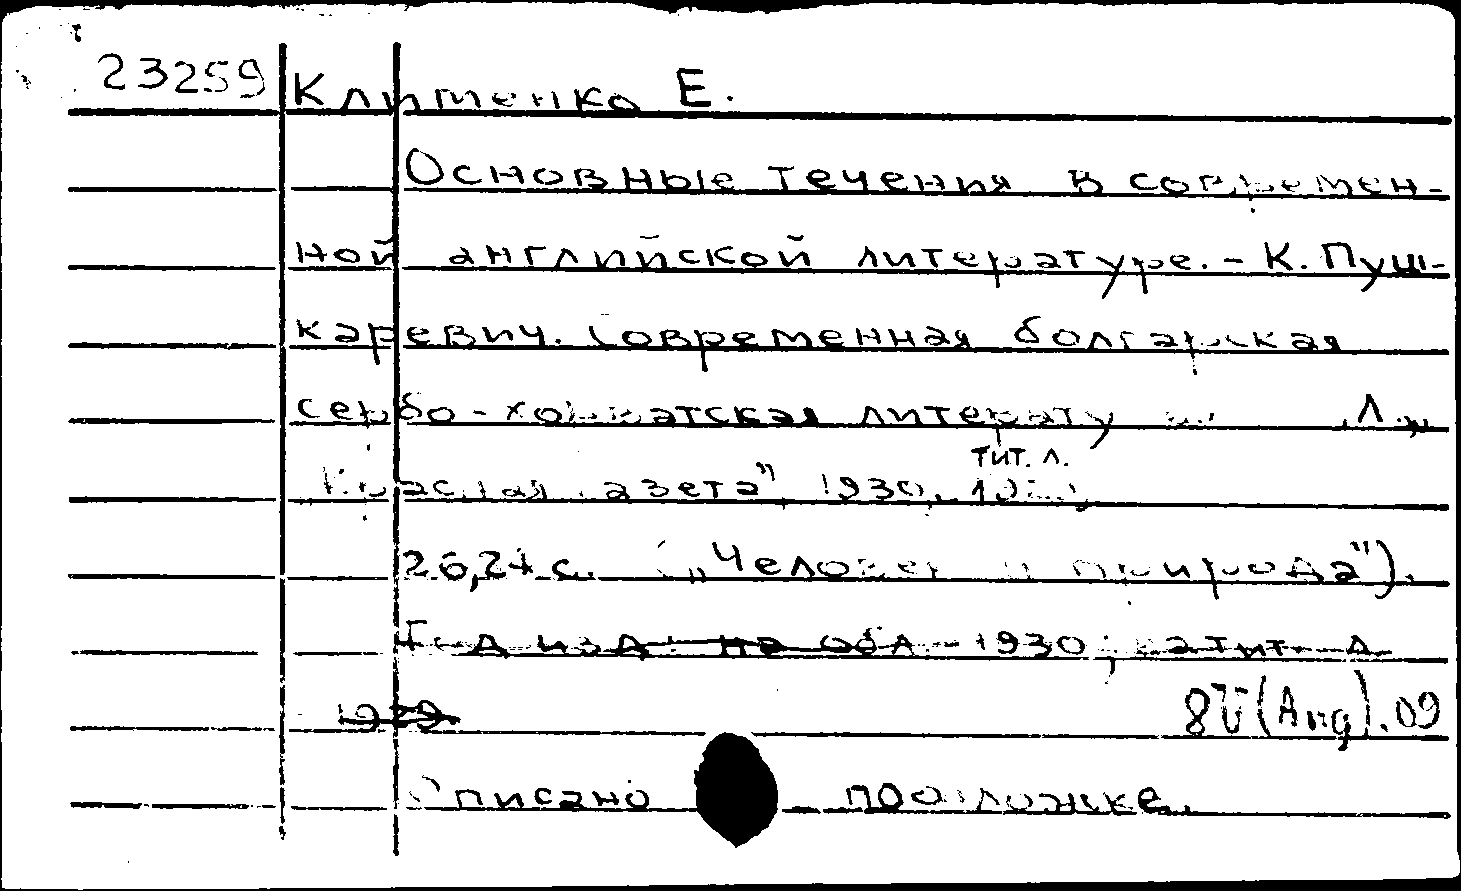 23259 Клименко Е.
Основные течения в современ-
ной английской литературе. - К. Пуш-
каревич. Современная болгарская
сербо-хорватская литерату Л.,,
тит. л.
Красная газета", 1930,
26,2+ с. („Человек и природа").
Год изд. на обл - 1930; на тит. л
1929.
8U(Ang).09
Описано по обложке.